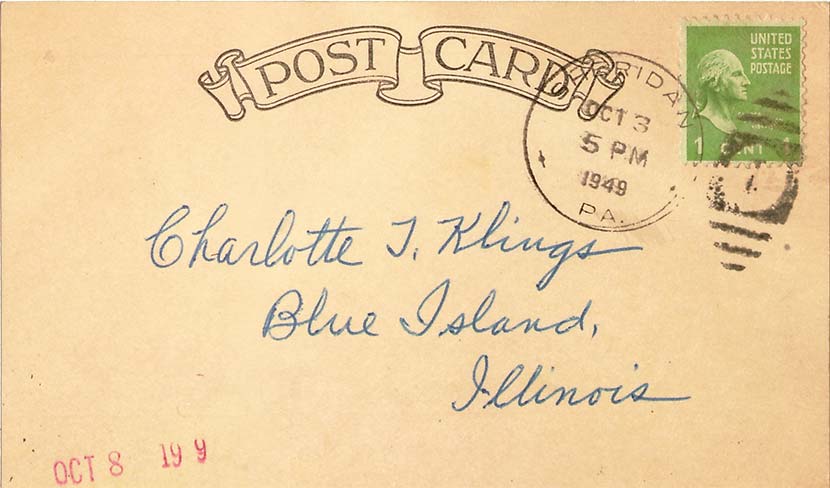 POST CARD
UNITED
STATES
POSTAGE
1 CENT 1
OCT 3
5 PM
1949
PA.
Charlotte T. Klings
Blue Island,
Illinois
OCT 8 19 9